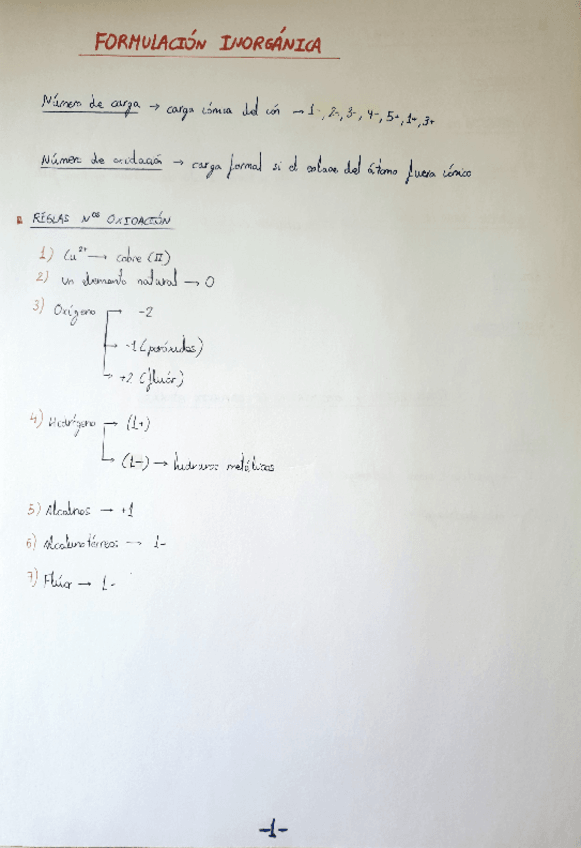 FORMULACIÓN INORGÁNICA
Número de carga → carga iónica del ión → 1-, 2-, 3-, 4-, 5+, 1+, 3+
Número de oxidación → carga formal si el enlace del átomo fuera iónico
REGLAS Nos OXIDACIÓN
1) Cu2+ → cobre (II)
2) un elemento natural → 0
3) Oxígeno → -2
→ -1 (peróxidos)
→ +2 (flúor)
4) Hidrógeno → (1+)
(1-) → hidruros metálicos
5) Alcalinos → +1
6) Alcalinotérreos → 1-
7) Flúor → 1-
-1-